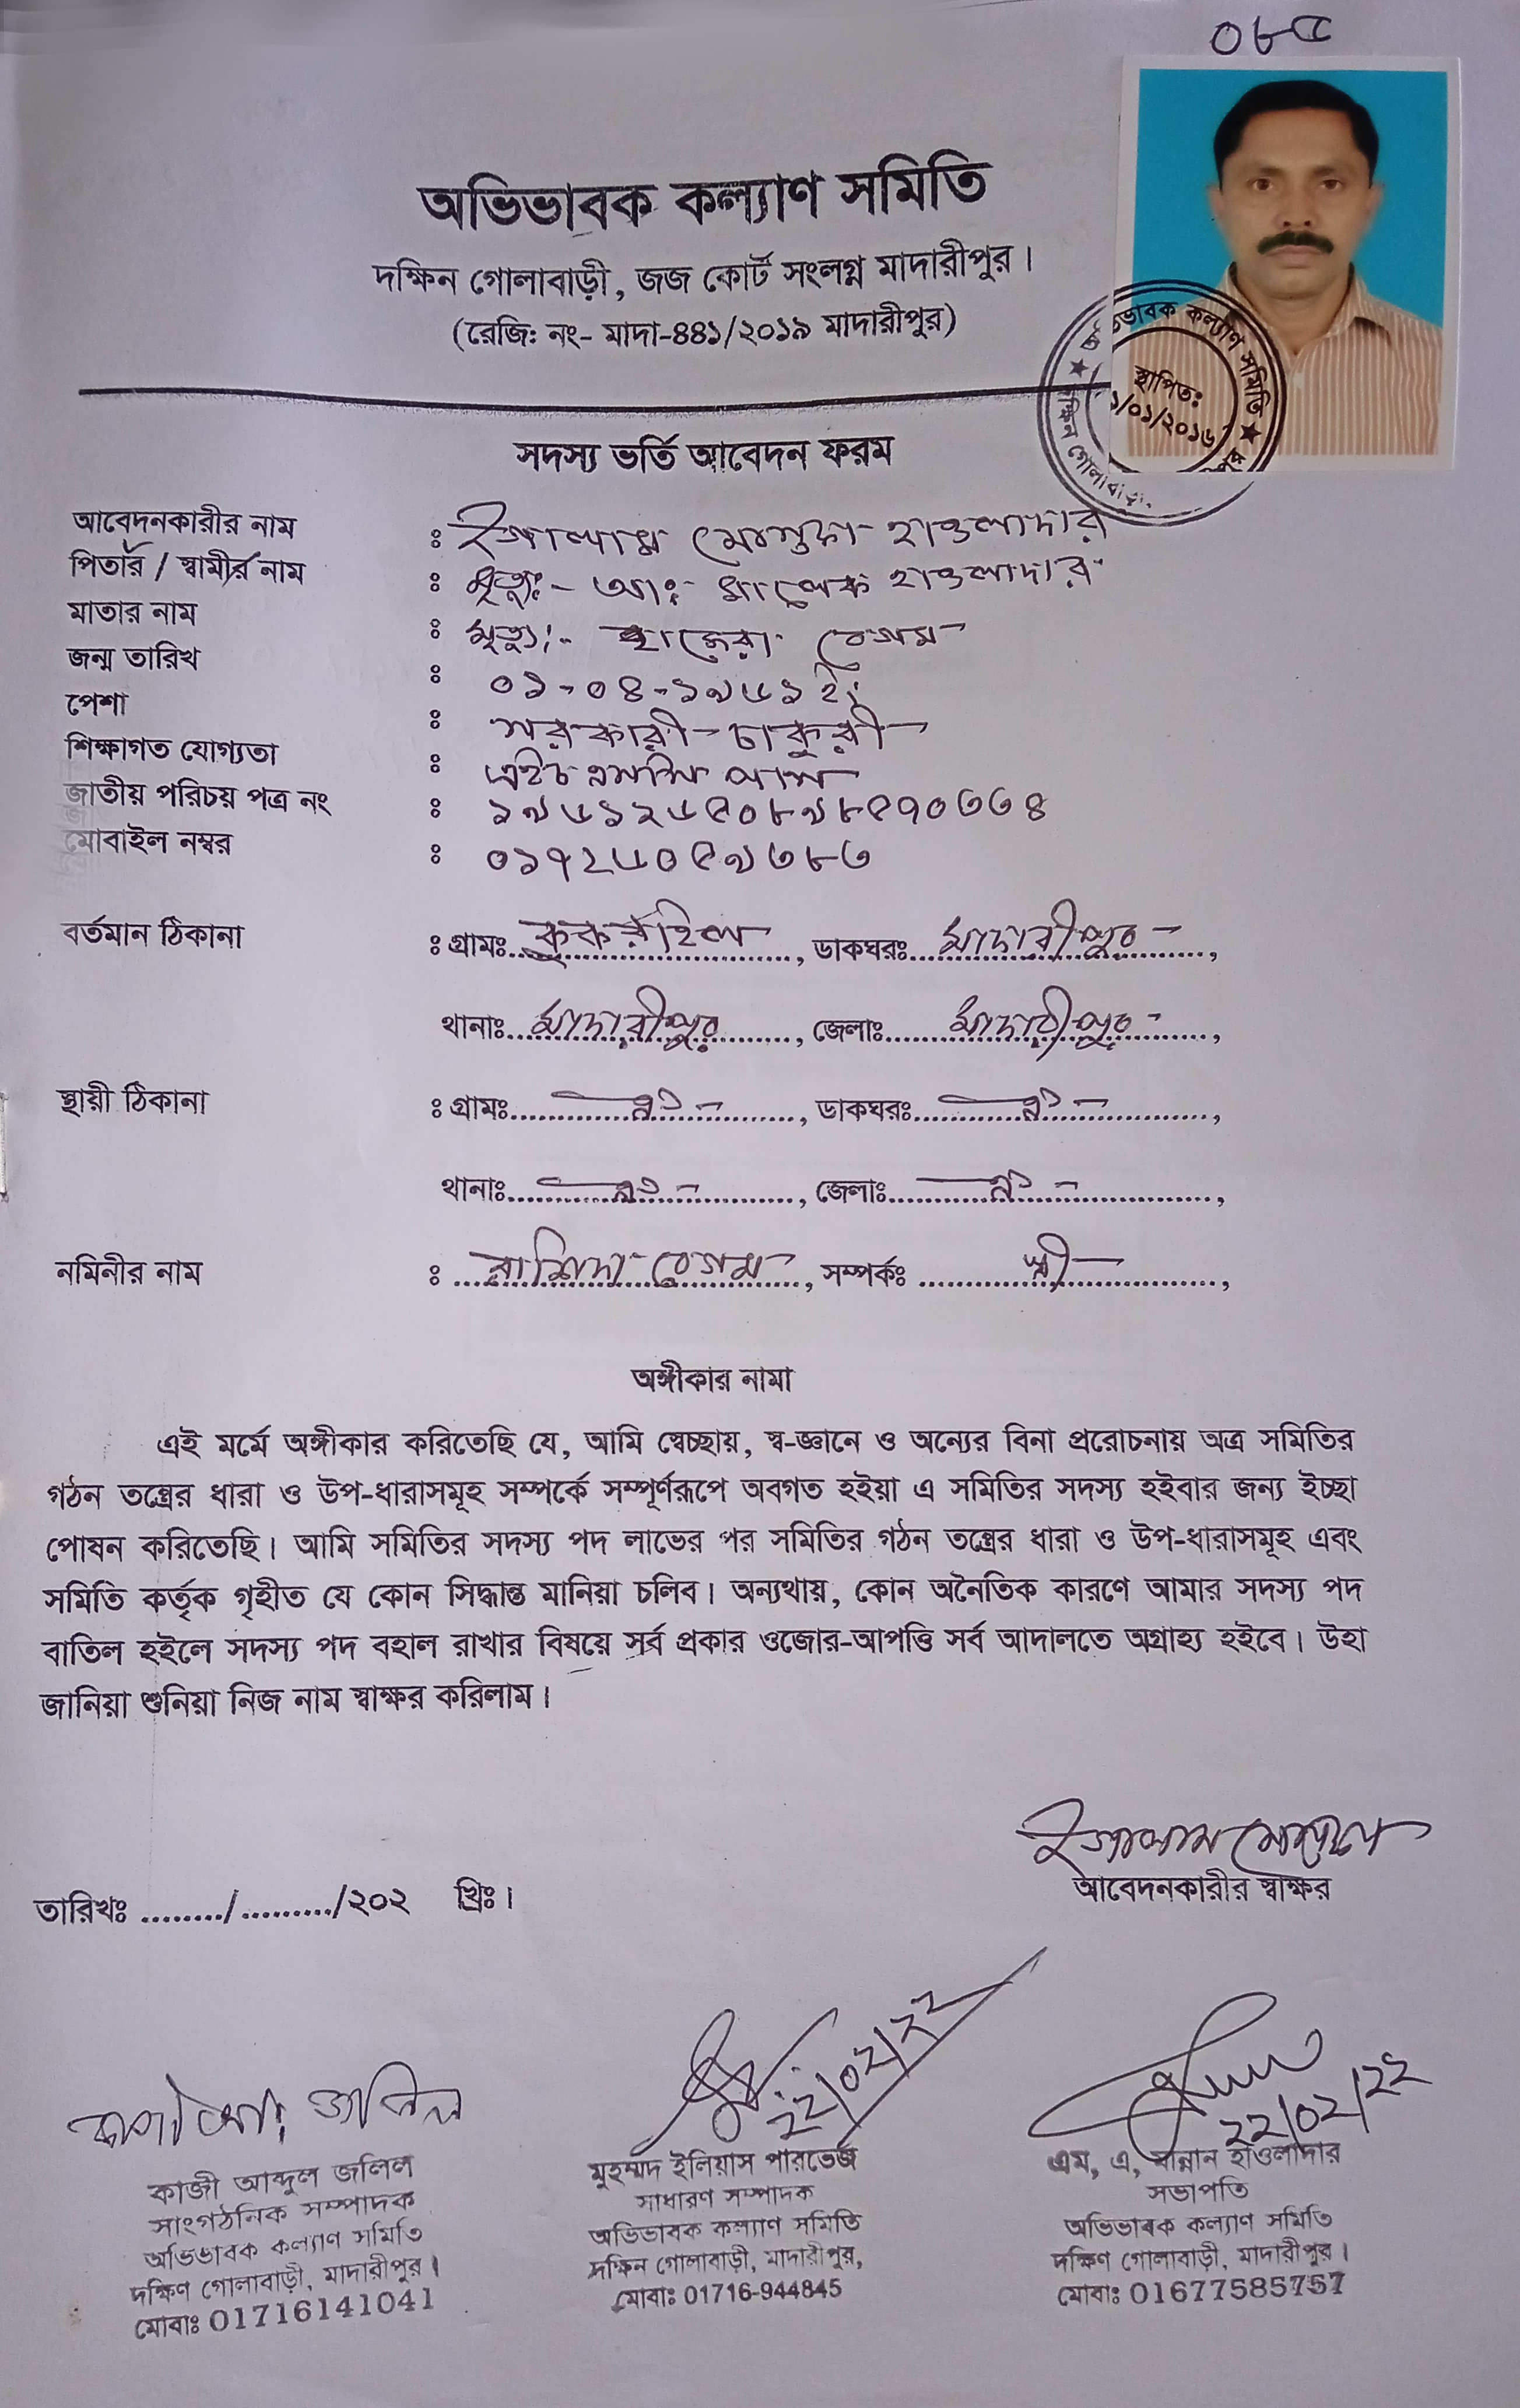 ০৮৫
অভিভাবক কল্যাণ সমিতি
দক্ষিন গোলাবাড়ী, জজ কোর্ট সংলগ্ন মাদারীপুর।
(রেজি: নং- মাদা-৪৪১/২০১৯ মাদারীপুর)
ভিভাবক কল্যাণ সমিতি ★
স্থাপিত:
১/০১/২০১৬
সদস্য ভর্তি আবেদন ফরম
আবেদনকারীর নাম : গোলাম হাওলাদার
পিতার / স্বামীর নাম : মৃত্যুঃ- আঃ মালেক হাওলাদার
মাতার নাম : মৃত্যুঃ- হাজেরা বেগম
জন্ম তারিখ : ০১-০৪-১৯৬১ ইং
পেশা : সরকারী চাকুরী
শিক্ষাগত যোগ্যতা : এইচ এসসি পাস
জাতীয় পরিচয় পত্র নং : ১৯৬১২৬৫০৮৯৮৫৭০৩৩৪
মোবাইল নম্বর : ০১৭২৬০৫৯৩৮৩
বর্তমান ঠিকানা : গ্রামঃ কুকরাইল, ডাকঘরঃ মাদারীপুর,
থানাঃ মাদারীপুর, জেলাঃ মাদারীপুর,
স্থায়ী ঠিকানা : গ্রামঃ ঐ, ডাকঘরঃ ঐ,
থানাঃ ঐ, জেলাঃ ঐ,
নমিনীর নাম : রাশিদা বেগম, সম্পর্কঃ স্ত্রী,
অঙ্গীকার নামা
এই মর্মে অঙ্গীকার করিতেছি যে, আমি স্বেচ্ছায়, স্ব-জ্ঞানে ও অন্যের বিনা প্ররোচনায় অত্র সমিতির
গঠন তন্ত্রের ধারা ও উপ-ধারাসমূহ সম্পর্কে সম্পূর্ণরূপে অবগত হইয়া এ সমিতির সদস্য হইবার জন্য ইচ্ছা
পোষন করিতেছি। আমি সমিতির সদস্য পদ লাভের পর সমিতির গঠন তন্ত্রের ধারা ও উপ-ধারাসমূহ এবং
সমিতি কর্তৃক গৃহীত যে কোন সিদ্ধান্ত মানিয়া চলিব। অন্যথায়, কোন অনৈতিক কারণে আমার সদস্য পদ
বাতিল হইলে সদস্য পদ বহাল রাখার বিষয়ে সর্ব প্রকার ওজোর-আপত্তি সর্ব আদালতে অগ্রাহ্য হইবে। উহা
জানিয়া শুনিয়া নিজ নাম স্বাক্ষর করিলাম।
আবেদনকারীর স্বাক্ষর
তারিখঃ ......../........./২০২ খ্রিঃ।
২২/০২/২২
২২/০২/২২
কাজী আব্দুল জলিল
সাংগঠনিক সম্পাদক
অভিভাবক কল্যাণ সমিতি
দক্ষিণ গোলাবাড়ী, মাদারীপুর।
মোবাঃ 01716141041
মুহম্মদ ইলিয়াস পারভেজ
সাধারণ সম্পাদক
অভিভাবক কল্যাণ সমিতি
দক্ষিন গোলাবাড়ী, মাদারীপুর,
মোবাঃ 01716-944845
এম, এ, মান্নান হাওলাদার
সভাপতি
অভিভাবক কল্যাণ সমিতি
দক্ষিণ গোলাবাড়ী, মাদারীপুর।
মোবাঃ 01677585757